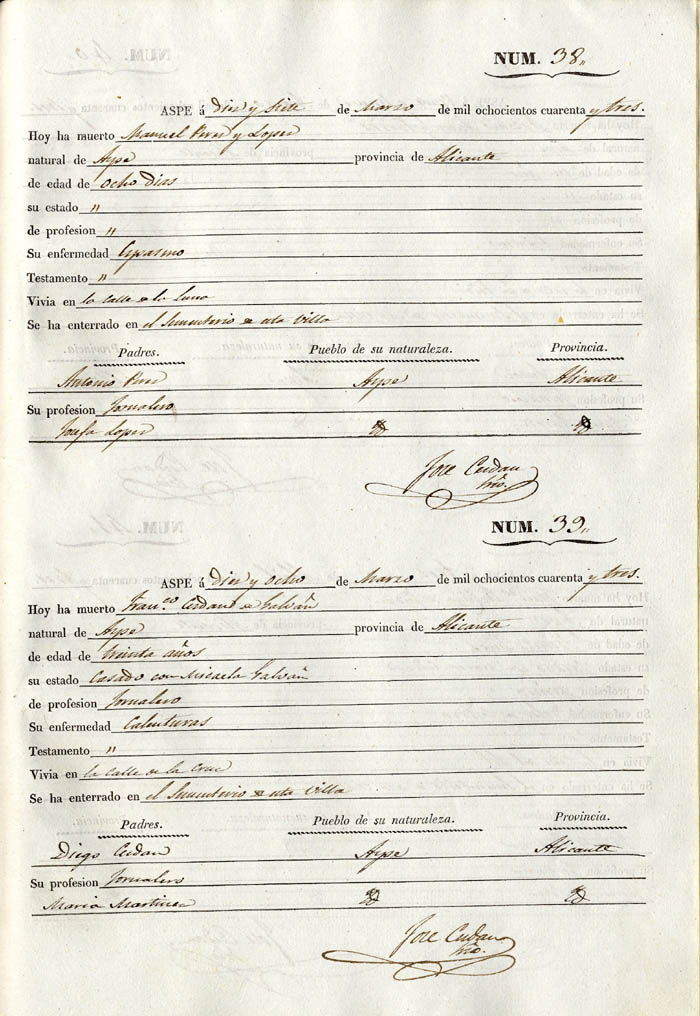 NUM. 38.,
ASPE á Diez y Siete de Marzo de mil ochocientos cuarenta y tres.
Hoy ha muerto Manuel Perez y Lopez
natural de Aspe provincia de Alicante
de edad de ocho dias
su estado "
de profesion "
Su enfermedad Espasmo
Testamento "
Vivia en la Calle de la Luna
Se ha enterrado en el Sementerio de esta Villa
Padres. Pueblo de su naturaleza. Provincia.
Antonio Perez Aspe Alicante
Su profesion Jornalero
Josefa Lopez
Jose Cerdan
NUM. 39.,
ASPE á Diez y ocho de Marzo de mil ochocientos cuarenta y tres.
Hoy ha muerto Fran.co Cerdan de Galvañ
natural de Aspe provincia de Alicante
de edad de treinta años
su estado Casado con Micaela Galvañ
de profesion Jornalero
Su enfermedad Calenturas
Testamento "
Vivia en la Calle de la Cruz
Se ha enterrado en el Sementerio de esta Villa
Padres. Pueblo de su naturaleza. Provincia.
Diego Cerdan Aspe Alicante
Su profesion Jornalero
Maria Martinez
Jose Cerdan